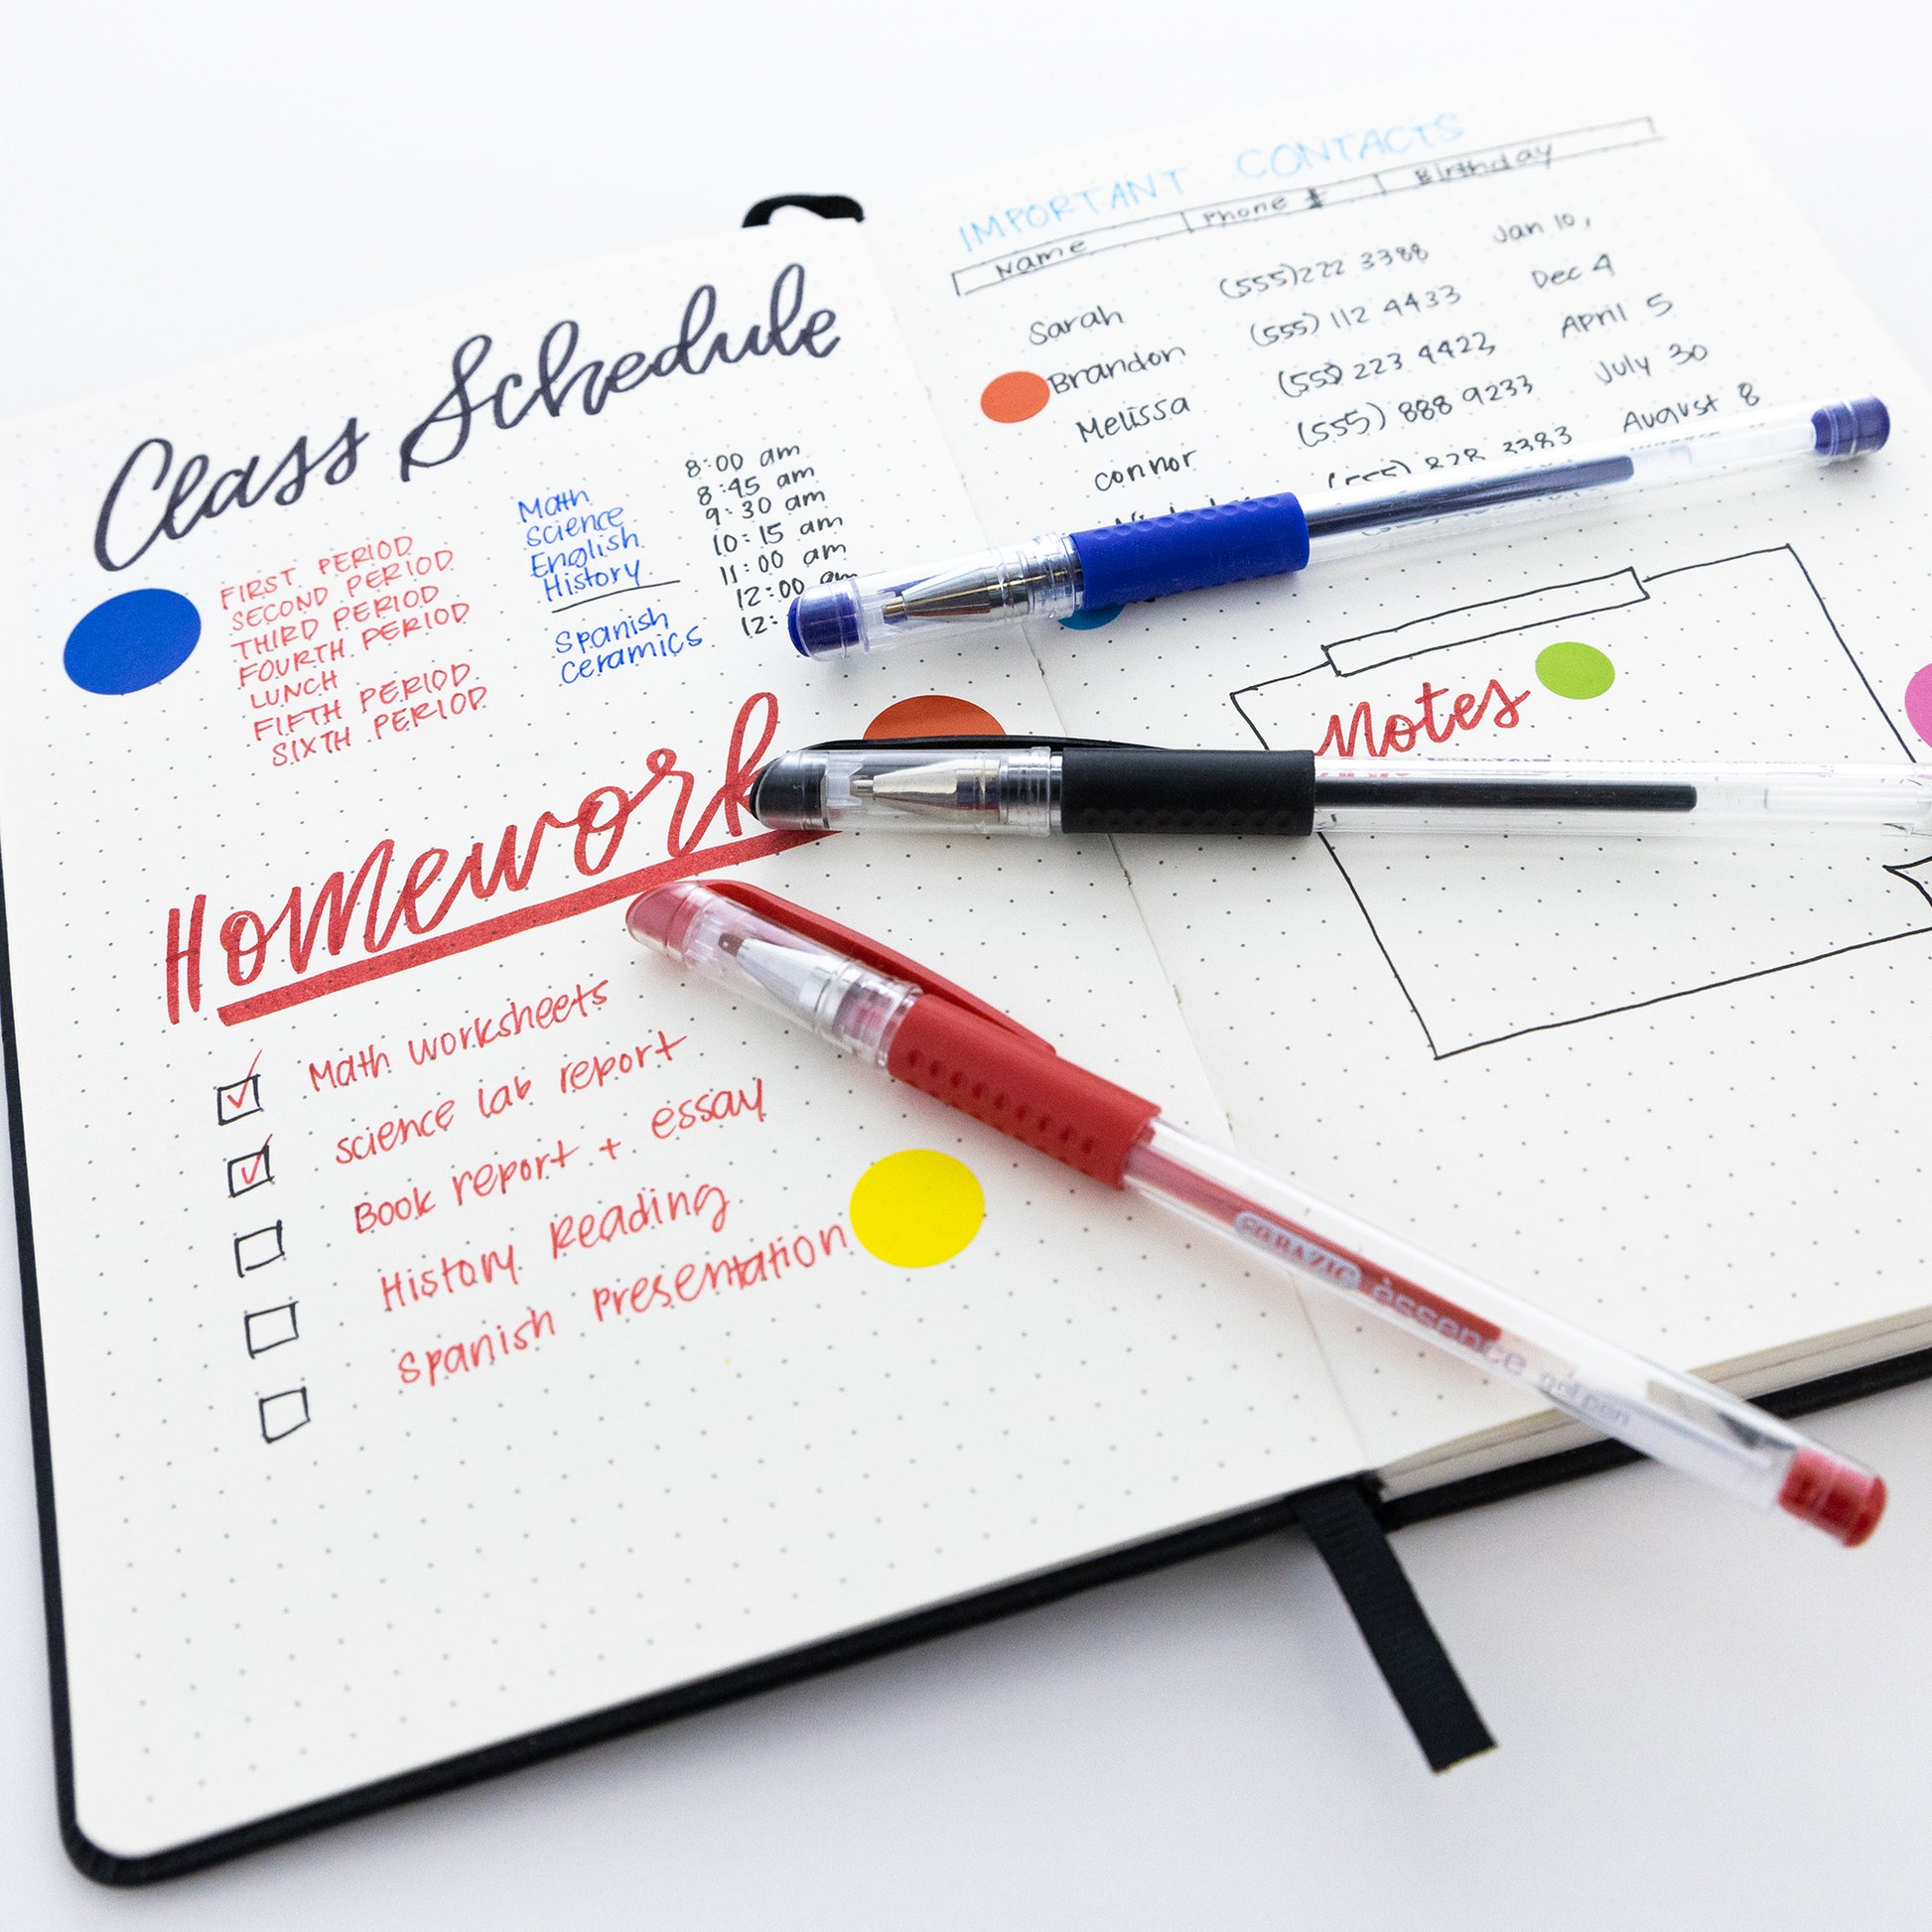 Class Schedule
FIRST PERIOD Math 8:00 am
SECOND PERIOD Science 8:45 am
THIRD PERIOD English 9:30 am
FOURTH PERIOD History 10:15 am
LUNCH 11:00 am
FIFTH PERIOD Spanish 12:00 am
SIXTH PERIOD Ceramics 12:
Homework
Math worksheets
science lab report
Book report + essay
History Reading
Spanish Presentation
IMPORTANT CONTACTS
Name Phone # Birthday
Sarah (555)222 3388 Jan 10,
Brandon (555) 112 4433 Dec 4
Melissa (555) 223 4422 April 5
connor (555) 888 9233 July 30
(555) 828 3383 August 8
Notes
èssence gel pen